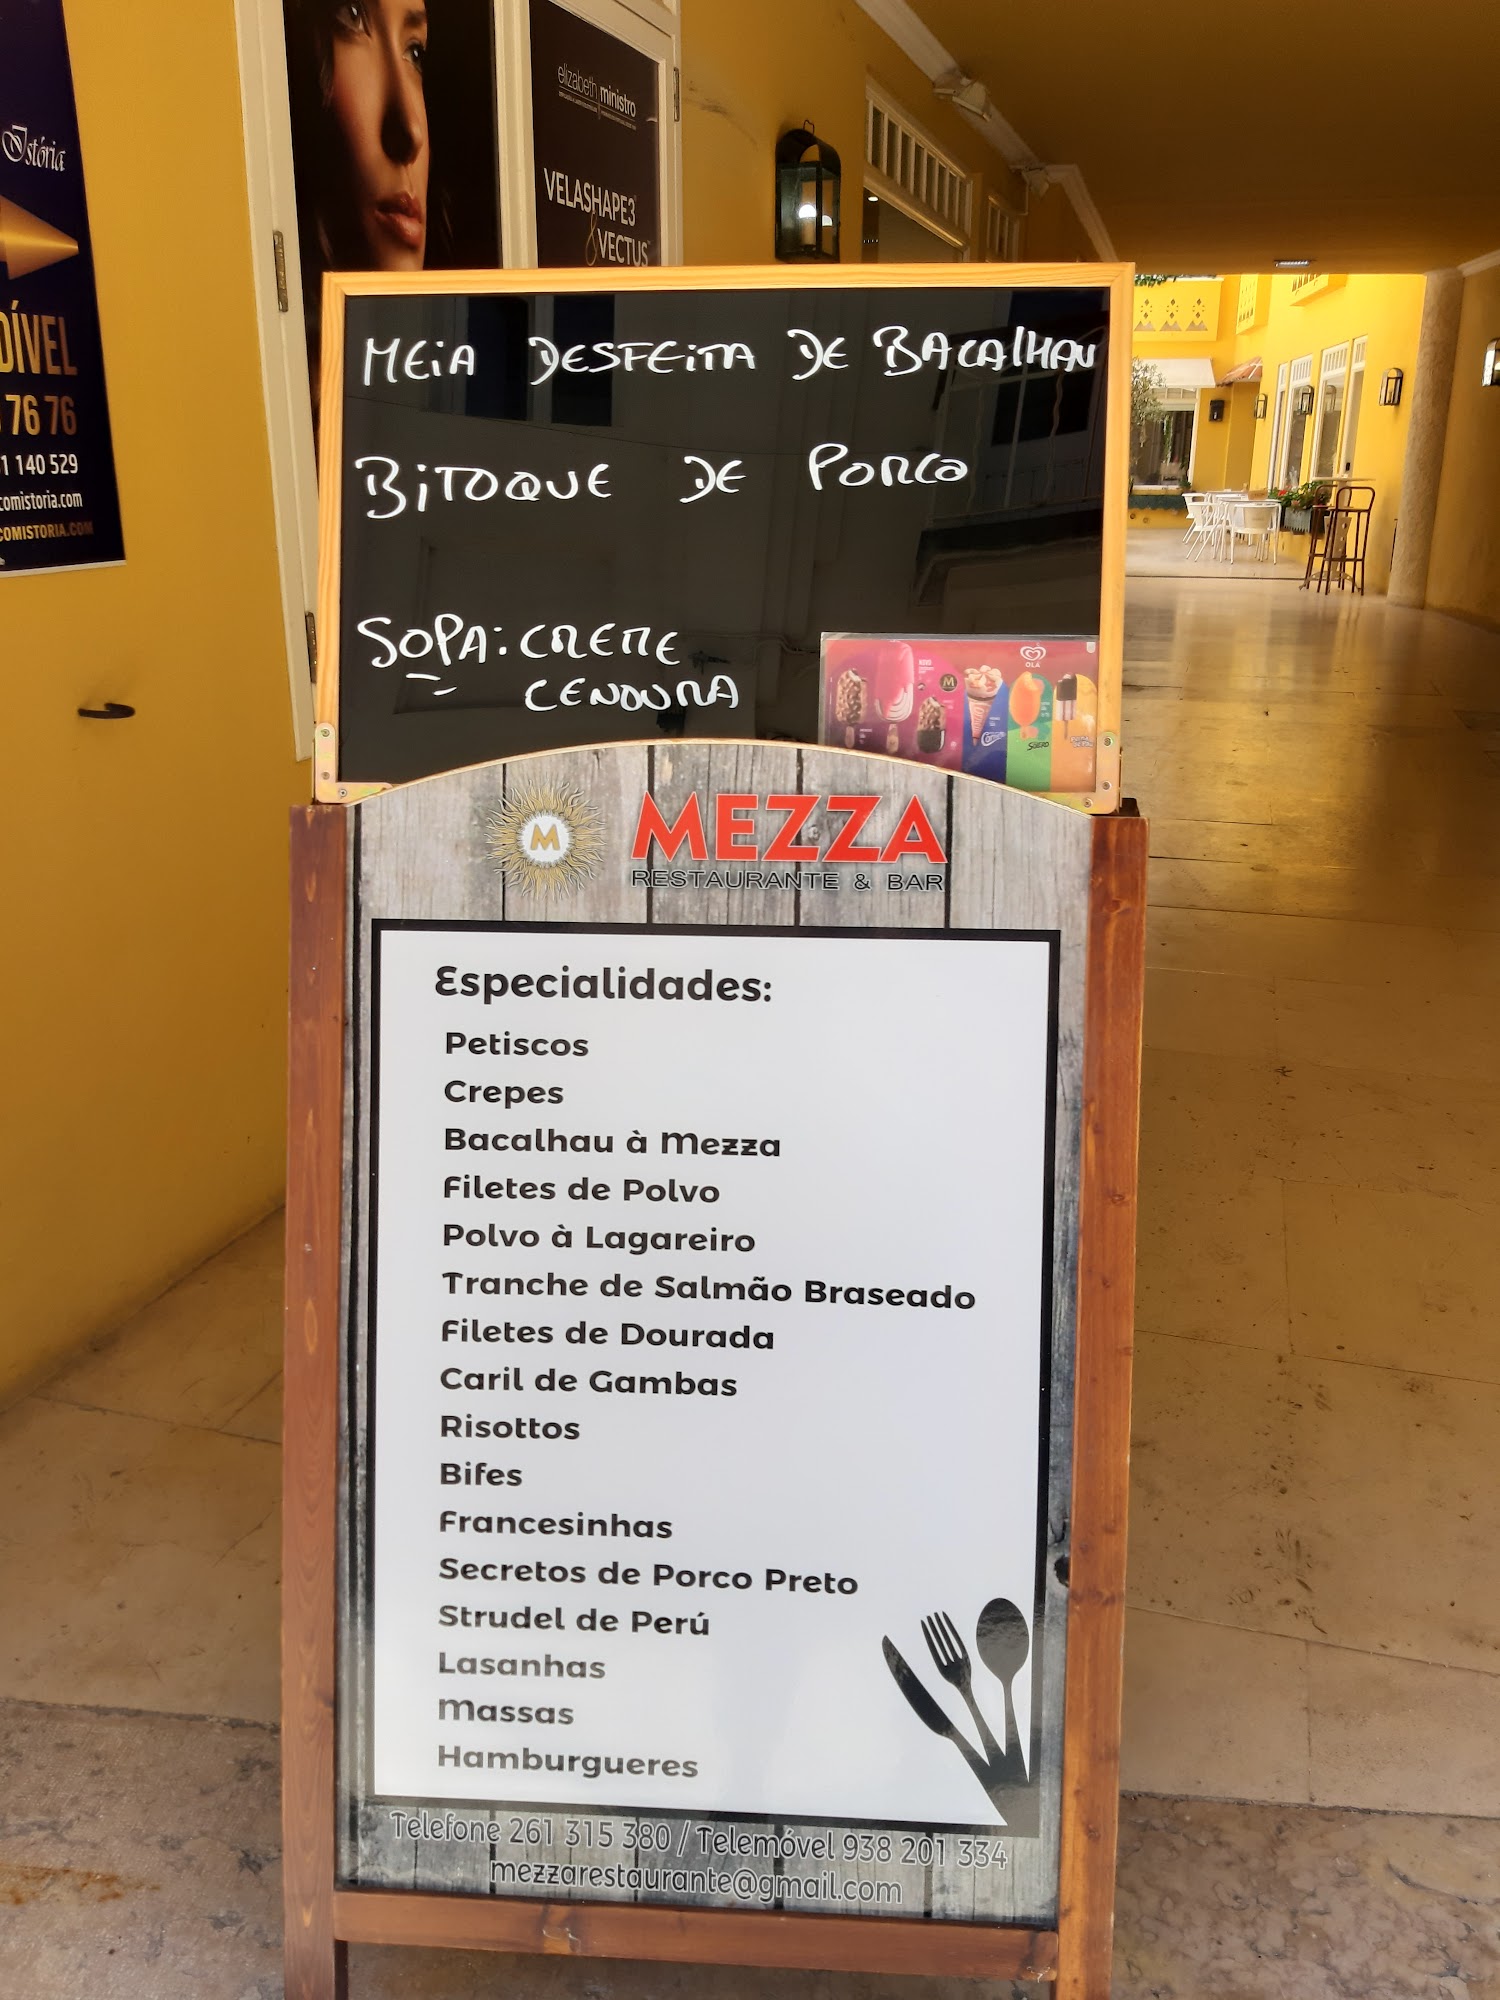 Istória
DÍVEL
76 76
1 140 529
comistoria.com
COMISTORIA.COM
elizabeth ministro
VELASHAPE3
& VECTUS
MEIA DESFEITA DE BACALHAU
BITOQUE DE PORCO
SOPA: CREME
CENOURA
OLÁ
M
MEZZA
RESTAURANTE & BAR
Especialidades:
Petiscos
Crepes
Bacalhau à Mezza
Filetes de Polvo
Polvo à Lagareiro
Tranche de Salmão Braseado
Filetes de Dourada
Caril de Gambas
Risottos
Bifes
Francesinhas
Secretos de Porco Preto
Strudel de Perú
Lasanhas
Massas
Hamburgueres
Telefone 261 315 380 / Telemóvel 938 201 334
mezzarestaurante@gmail.com